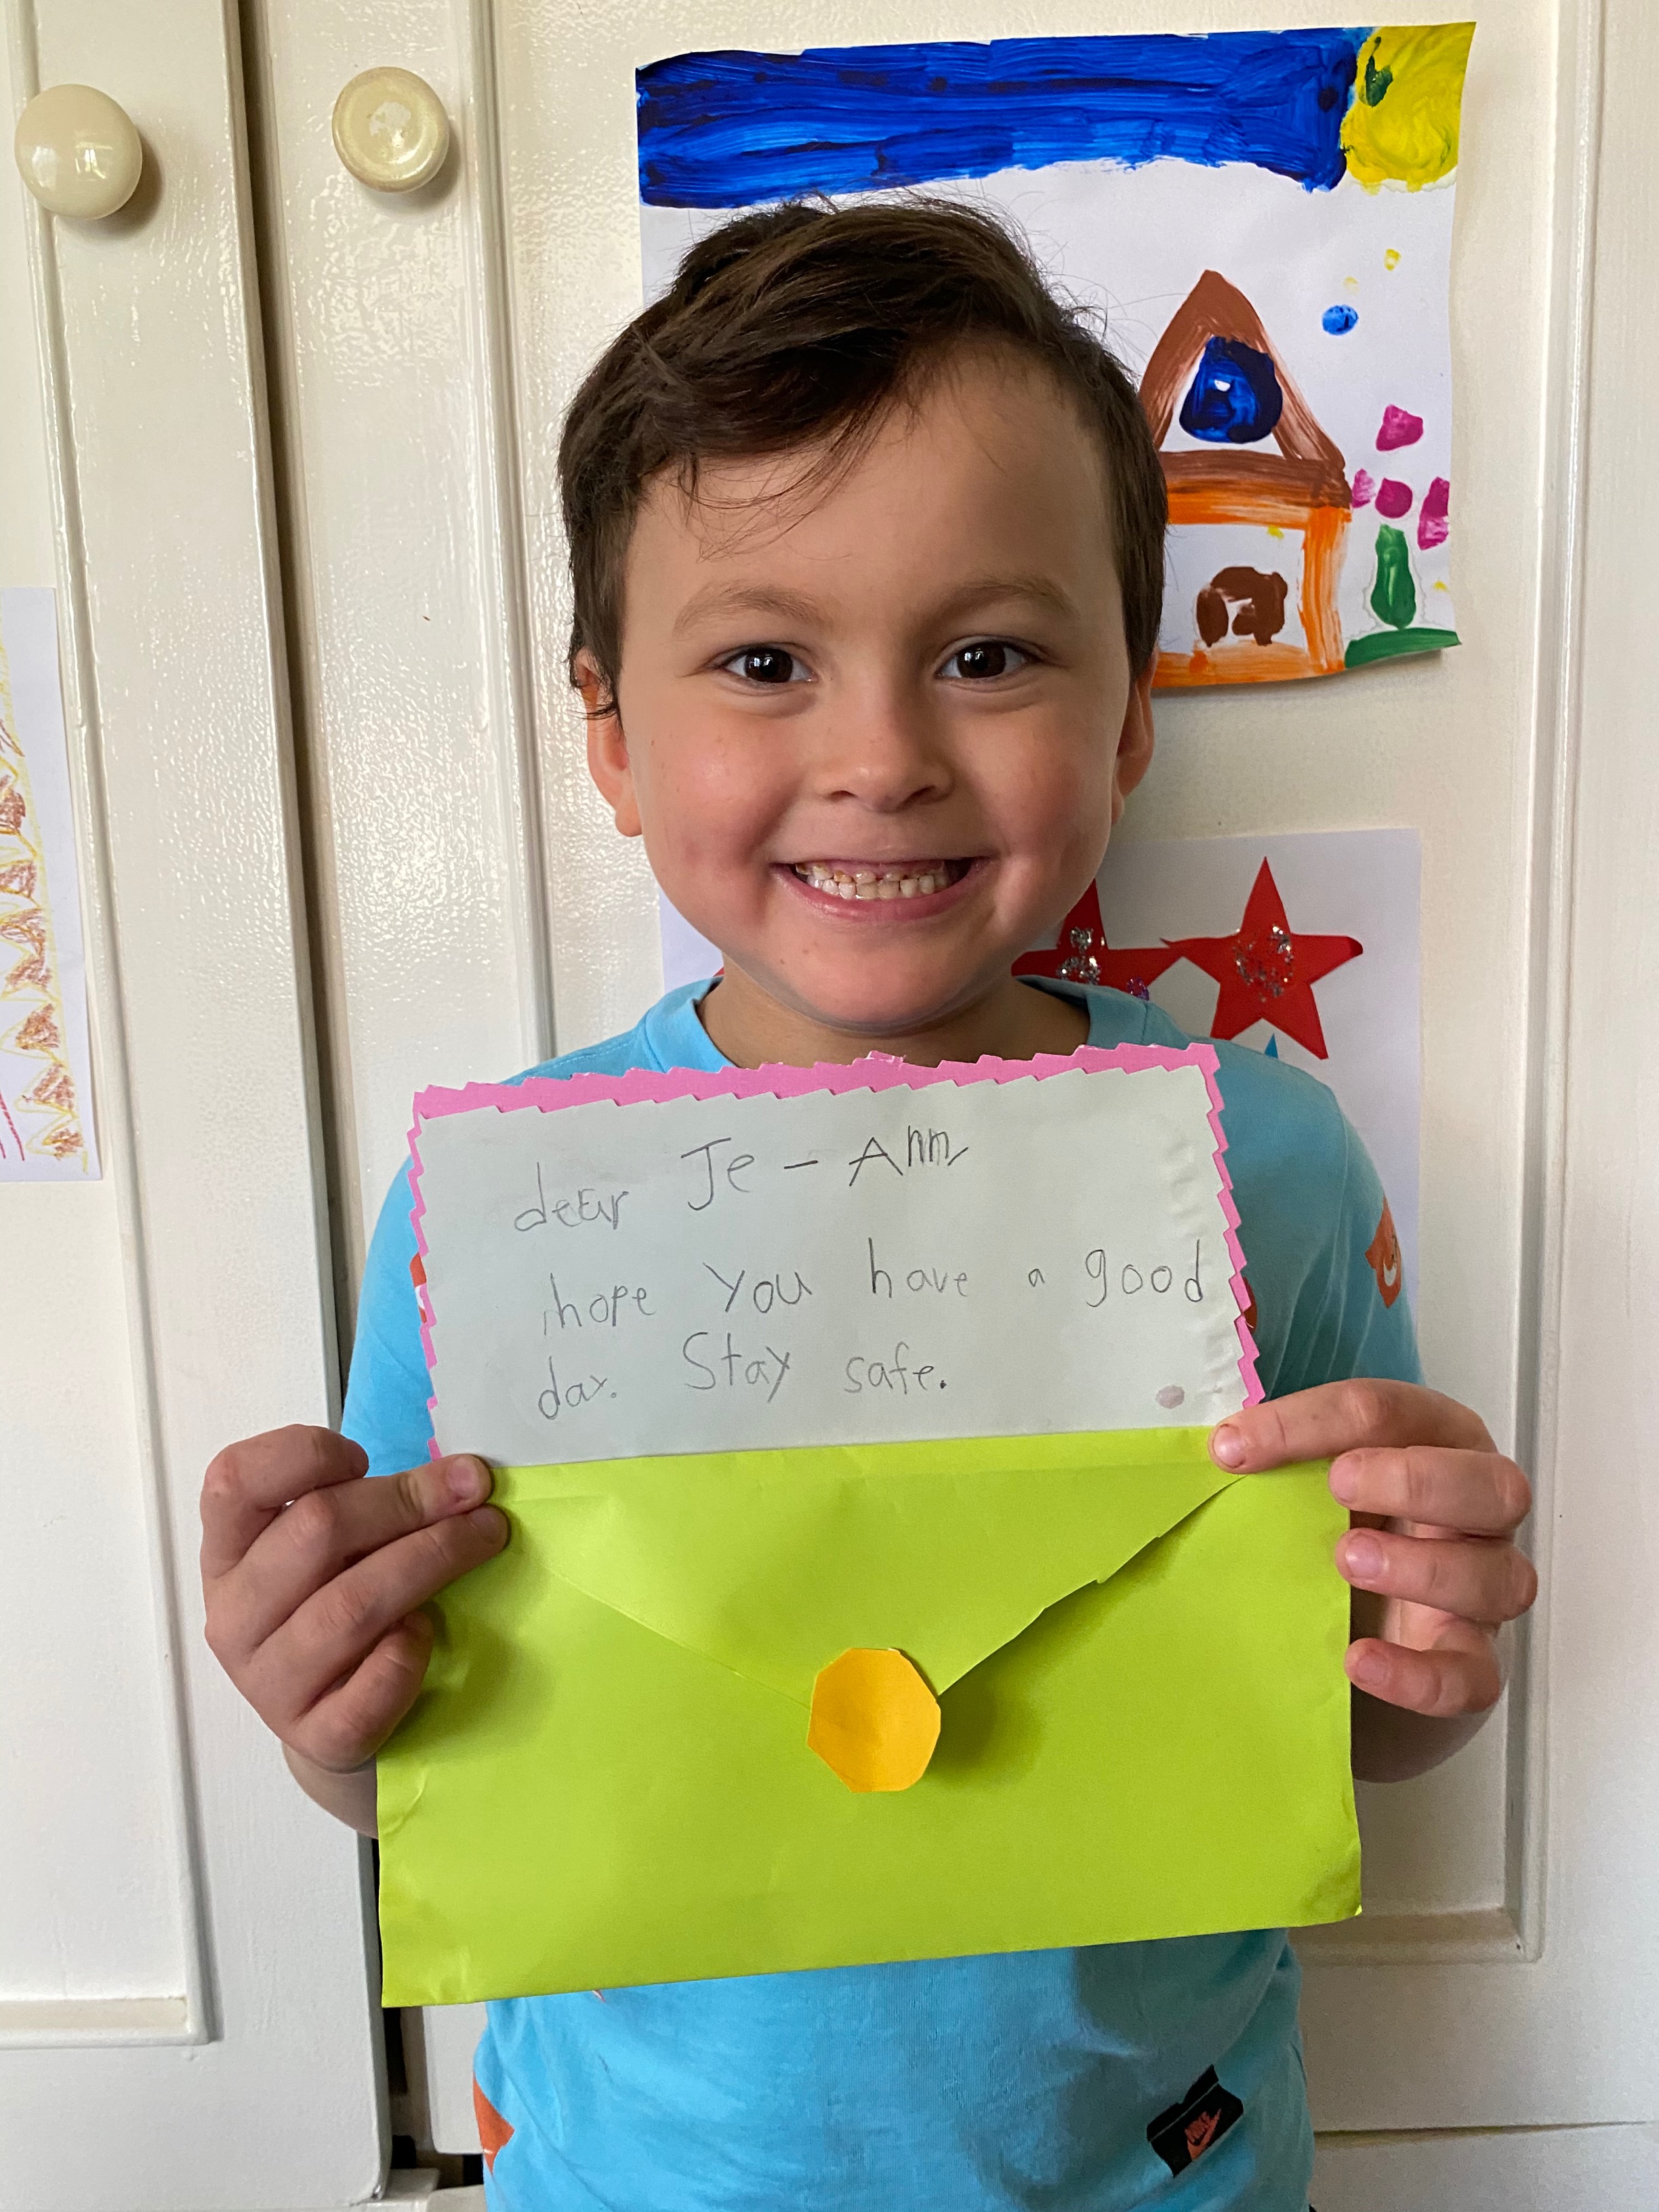 dear Je-Ann
hope you have a good
day. Stay safe.
NIKE